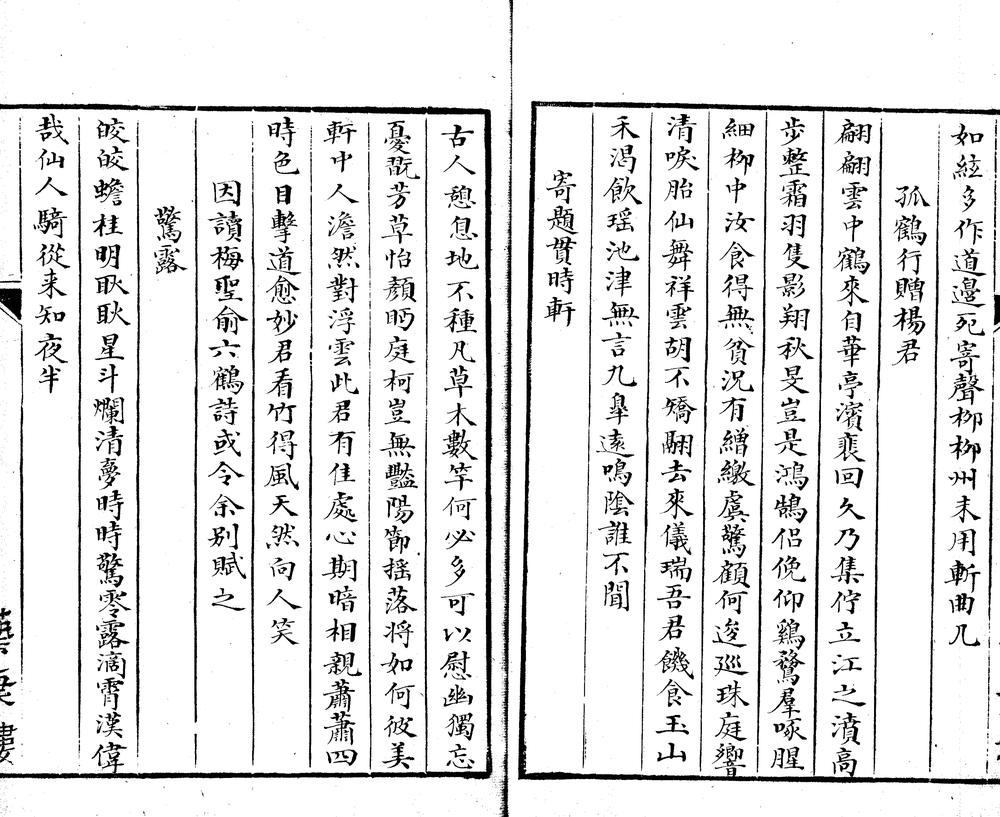 如絃多作道邊死寄聲柳柳州未用斬曲几
孤鶴行贈楊君
翩翩雲中鶴來自華亭濱裴回久乃集佇立江之濆高
步整霜羽隻影翔秋旻豈是鴻鵠侶俛仰鷄鶩羣啄腥
細柳中汝食得無貧況有繒繳虞驚顧何逡廵珠庭響
清唳胎仙舞祥雲胡不矯翮去來儀瑞吾君饑食玉山
禾渴飲瑶池津無言九臯遠鳴陰誰不聞
寄題貫時軒
古人憩息地不種凡草木數竿何必多可以慰幽獨忘
憂翫芳草怡顏眄庭柯豈無豔陽節揺落將如何彼美
軒中人澹然對浮雲此君有佳處心期暗相親蕭蕭四
時色目擊道愈妙君看竹得風天然向人笑
因讀梅聖俞六鶴詩或令余别賦之
驚露
皎皎蟾桂明耿耿星斗爛清夢時時驚零露滴霄漢偉
哉仙人騎從来知夜半